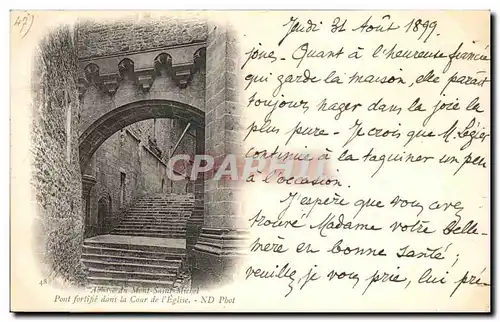 47)
Jeudi 31 Août 1899.
joue. - Quant à l'heureuse fiancée
qui garde la maison, elle paraît
toujours nager dans la joie la
plus pure. - Je crois que M. Légier
continue à la taquiner un peu
à l'occasion.
J'espère que vous avez
trouvé Madame votre Belle-
mère en bonne santé;
veuillez, je vous prie, lui pré-
CARP
48 Abbaye du Mont-Saint-Michel
Pont fortifié dans la Cour de l'Église. - ND Phot